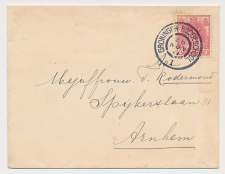 GRONINGEN
Mejuffrouw F. Rodermond
Spijkerslaan
Arnhem